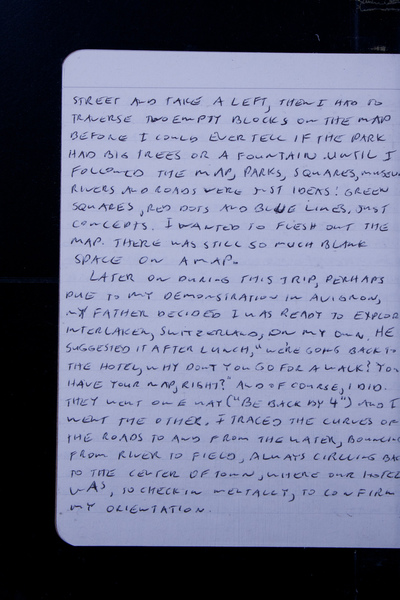 STREET AND TAKE A LEFT, THEN I HAD TO
TRAVERSE TWO EMPTY BLOCKS ON THE MAP
BEFORE I COULD EVER TELL IF THE PARK
HAD BIG TREES OR A FOUNTAIN. UNTIL I
FOLLOWED THE MAP, PARKS, SQUARES, MUSEUM
RIVERS AND ROADS WERE JUST IDEAS: GREEN
SQUARES, RED DOTS AND BLUE LINES, JUST
CONCEPTS. I WANTED TO FLESH OUT THE
MAP. THERE WAS STILL SO MUCH BLANK
SPACE ON A MAP.
LATER ON DURING THIS TRIP, PERHAPS
DUE TO MY DEMONSTRATION IN AVIGNON,
MY FATHER DECIDED I WAS READY TO EXPLOR
INTERLAKEN, SWITZERLAND, ON MY OWN. HE
SUGGESTED IT AFTER LUNCH, "WE'RE GOING BACK TO
THE HOTEL, WHY DON'T YOU GO FOR A WALK? YOU
HAVE YOUR MAP, RIGHT?" AND OF COURSE, I DID.
THEY WENT ONE WAY ("BE BACK BY 4") AND I
WENT THE OTHER. I TRACED THE CURVES OF
THE ROADS TO AND FROM THE WATER, BOUNCING
FROM RIVER TO FIELD, ALWAYS CIRCLING BAC
TO THE CENTER OF TOWN, WHERE OUR HOTEL
WAS, TO CHECK IN MENTALLY, TO CONFIRM
MY ORIENTATION.